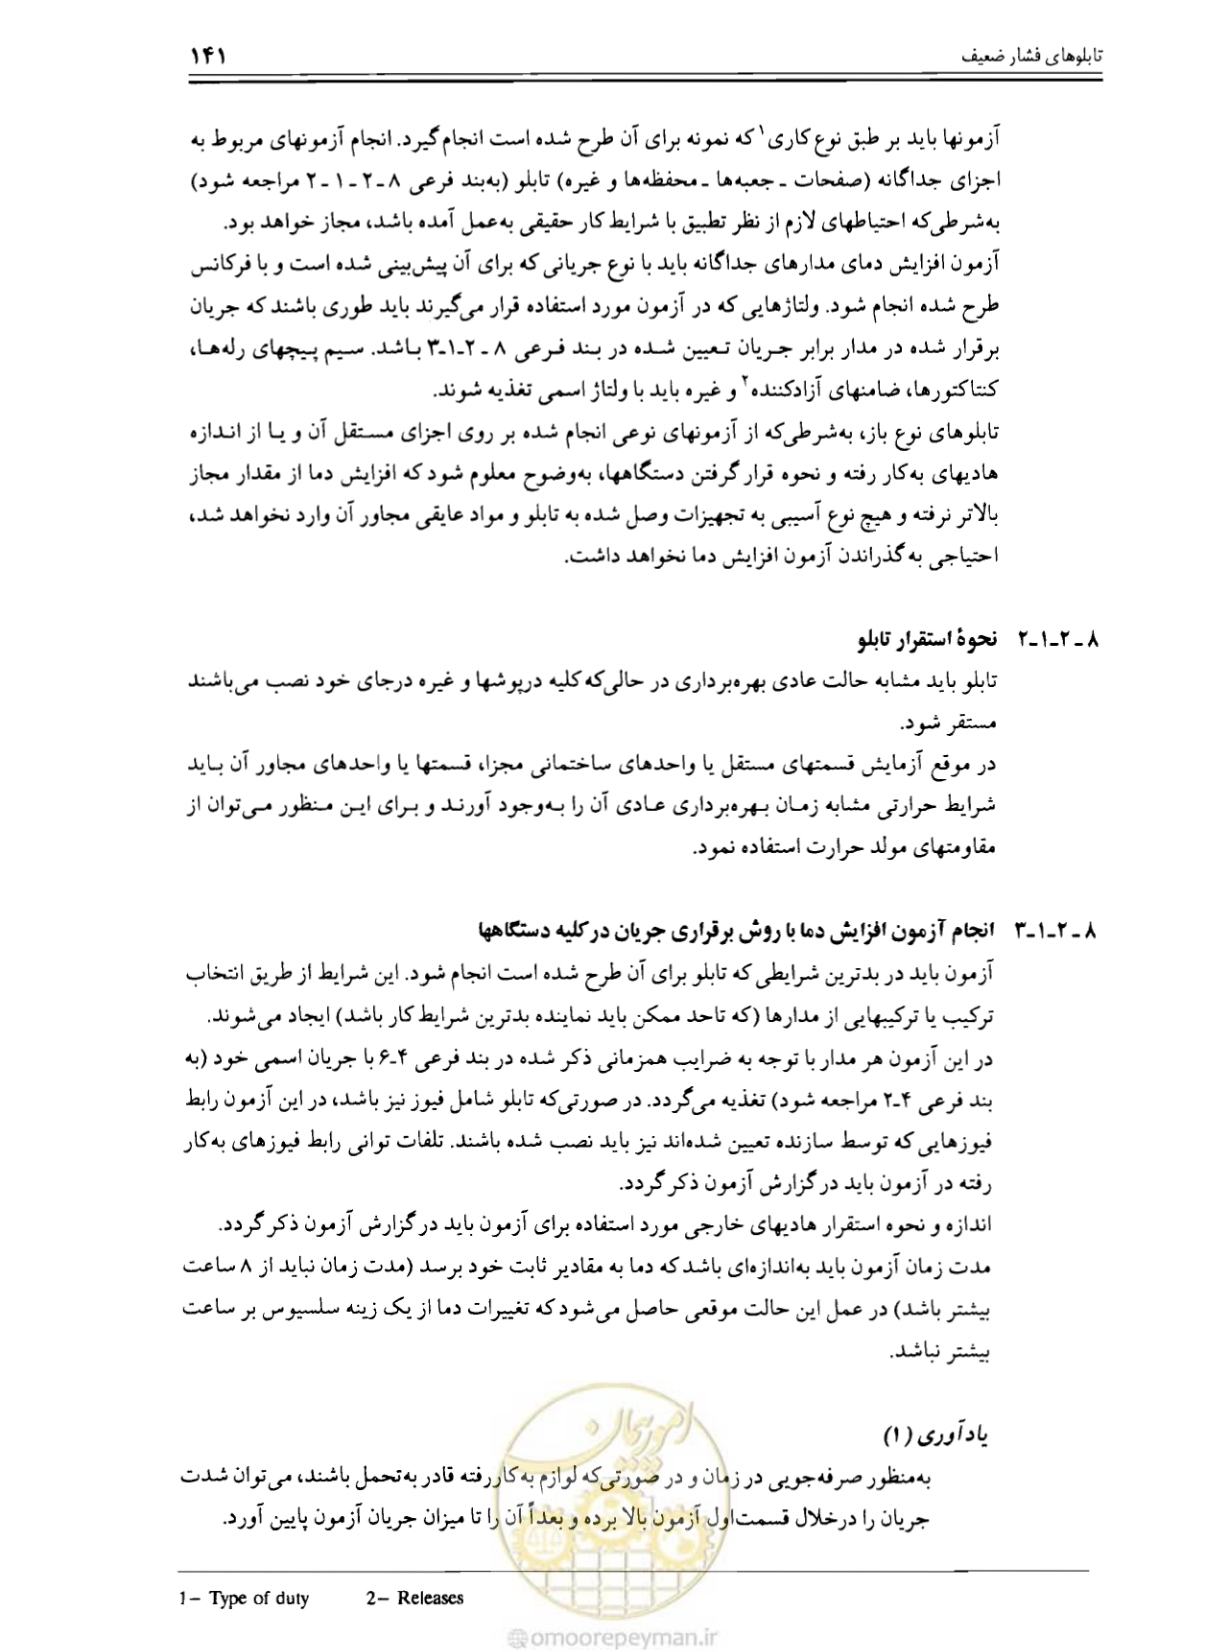 تابلوهای فشار ضعیف ۱۴۱
آزمونها باید بر طبق نوع کاری۱ که نمونه برای آن طرح شده است انجام گیرد. انجام آزمونهای مربوط به
اجزای جداگانه (صفحات ـ جعبه‌ها ـ محفظه‌ها و غیره) تابلو (به‌بند فرعی ۸ ـ ۲ ـ ۱ ـ ۲ مراجعه شود)
به‌شرطی‌که احتیاطهای لازم از نظر تطبیق با شرایط کار حقیقی به‌عمل آمده باشد، مجاز خواهد بود.
آزمون افزایش دمای مدارهای جداگانه باید با نوع جریانی که برای آن پیش‌بینی شده است و با فرکانس
طرح شده انجام شود. ولتاژهایی که در آزمون مورد استفاده قرار می‌گیرند باید طوری باشند که جریان
برقرار شده در مدار برابر جریان تعیین شده در بند فرعی ۸ ـ ۲ـ۱ـ۳ باشد. سیم پیچهای رله‌ها،
کنتاکتورها، ضامنهای آزادکننده۲ و غیره باید با ولتاژ اسمی تغذیه شوند.
تابلوهای نوع باز، به‌شرطی‌که از آزمونهای نوعی انجام شده بر روی اجزای مستقل آن و یا از اندازه
هادیهای به‌کار رفته و نحوه قرار گرفتن دستگاهها، به‌وضوح معلوم شود که افزایش دما از مقدار مجاز
بالاتر نرفته و هیچ نوع آسیبی به تجهیزات وصل شده به تابلو و مواد عایقی مجاور آن وارد نخواهد شد،
احتیاجی به گذراندن آزمون افزایش دما نخواهد داشت.
۸ ـ ۲ـ۱ـ۲ نحوۀ استقرار تابلو
تابلو باید مشابه حالت عادی بهره‌برداری در حالی‌که کلیه درپوشها و غیره درجای خود نصب می‌باشند
مستقر شود.
در موقع آزمایش قسمتهای مستقل یا واحدهای ساختمانی مجزا، قسمتها یا واحدهای مجاور آن باید
شرایط حرارتی مشابه زمان بهره‌برداری عادی آن را به‌وجود آورند و برای این منظور می‌توان از
مقاومتهای مولد حرارت استفاده نمود.
۸ ـ ۲ـ۱ـ۳ انجام آزمون افزایش دما با روش برقراری جریان در کلیه دستگاهها
آزمون باید در بدترین شرایطی که تابلو برای آن طرح شده است انجام شود. این شرایط از طریق انتخاب
ترکیب یا ترکیبهایی از مدارها (که تاحد ممکن باید نماینده بدترین شرایط کار باشد) ایجاد می‌شوند.
در این آزمون هر مدار با توجه به ضرایب همزمانی ذکر شده در بند فرعی ۴ـ۶ با جریان اسمی خود (به
بند فرعی ۴ـ۲ مراجعه شود) تغذیه می‌گردد. در صورتی‌که تابلو شامل فیوز نیز باشد، در این آزمون رابط
فیوزهایی که توسط سازنده تعیین شده‌اند نیز باید نصب شده باشند. تلفات توانی رابط فیوزهای به‌کار
رفته در آزمون باید در گزارش آزمون ذکر گردد.
اندازه و نحوه استقرار هادیهای خارجی مورد استفاده برای آزمون باید در گزارش آزمون ذکر گردد.
مدت زمان آزمون باید به‌اندازه‌ای باشد که دما به مقادیر ثابت خود برسد (مدت زمان نباید از ۸ ساعت
بیشتر باشد) در عمل این حالت موقعی حاصل می‌شود که تغییرات دما از یک زینه سلسیوس بر ساعت
بیشتر نباشد.
یادآوری (۱)
به‌منظور صرفه‌جویی در زمان و در صورتی‌که لوازم به‌کاررفته قادر به‌تحمل باشند، می‌توان شدت
جریان را درخلال قسمت‌اول آزمون بالا برده و بعداً آن را تا میزان جریان آزمون پایین آورد.
1– Type of duty 2– Releases
امور پیمان
@omoorepeyman.ir